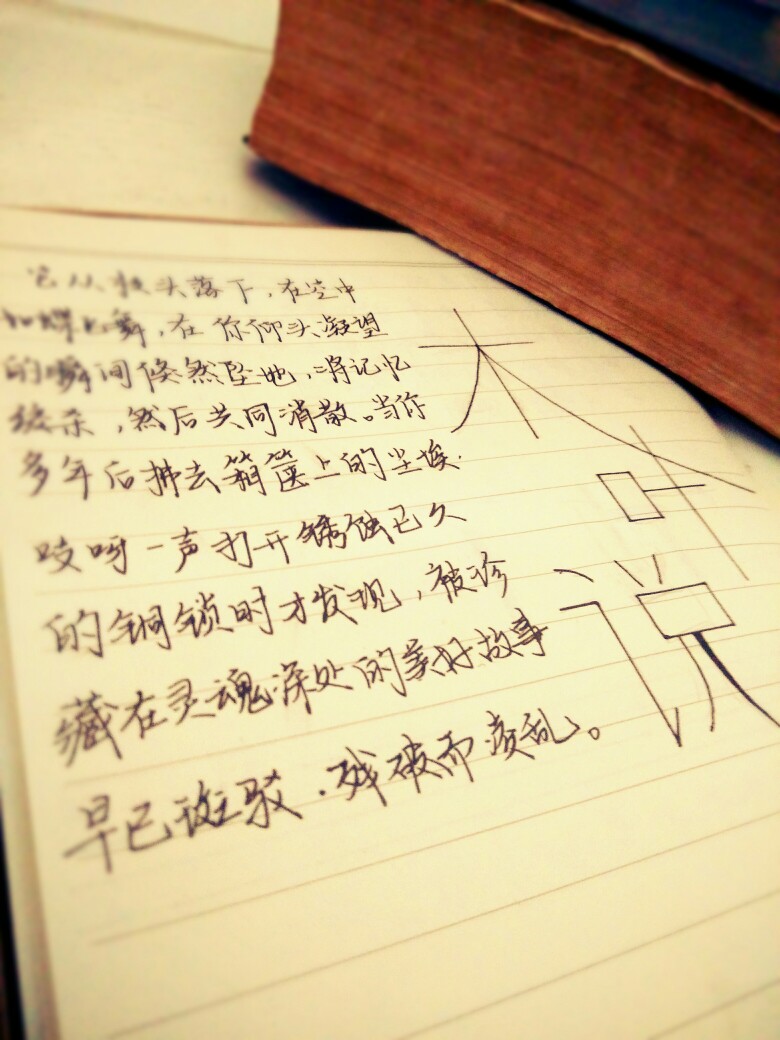 它从枝头落下，在空中
如蝶飞舞，在你仰头凝望
的瞬间倏然坠地，将记忆
绞杀，然后共同消散。当你
多年后拂去箱箧上的尘埃.
吱呀一声打开锈蚀已久
的铜锁时才发现，被珍
藏在灵魂深处的美好故事
早已斑驳.残破而凌乱。
木
叶
说